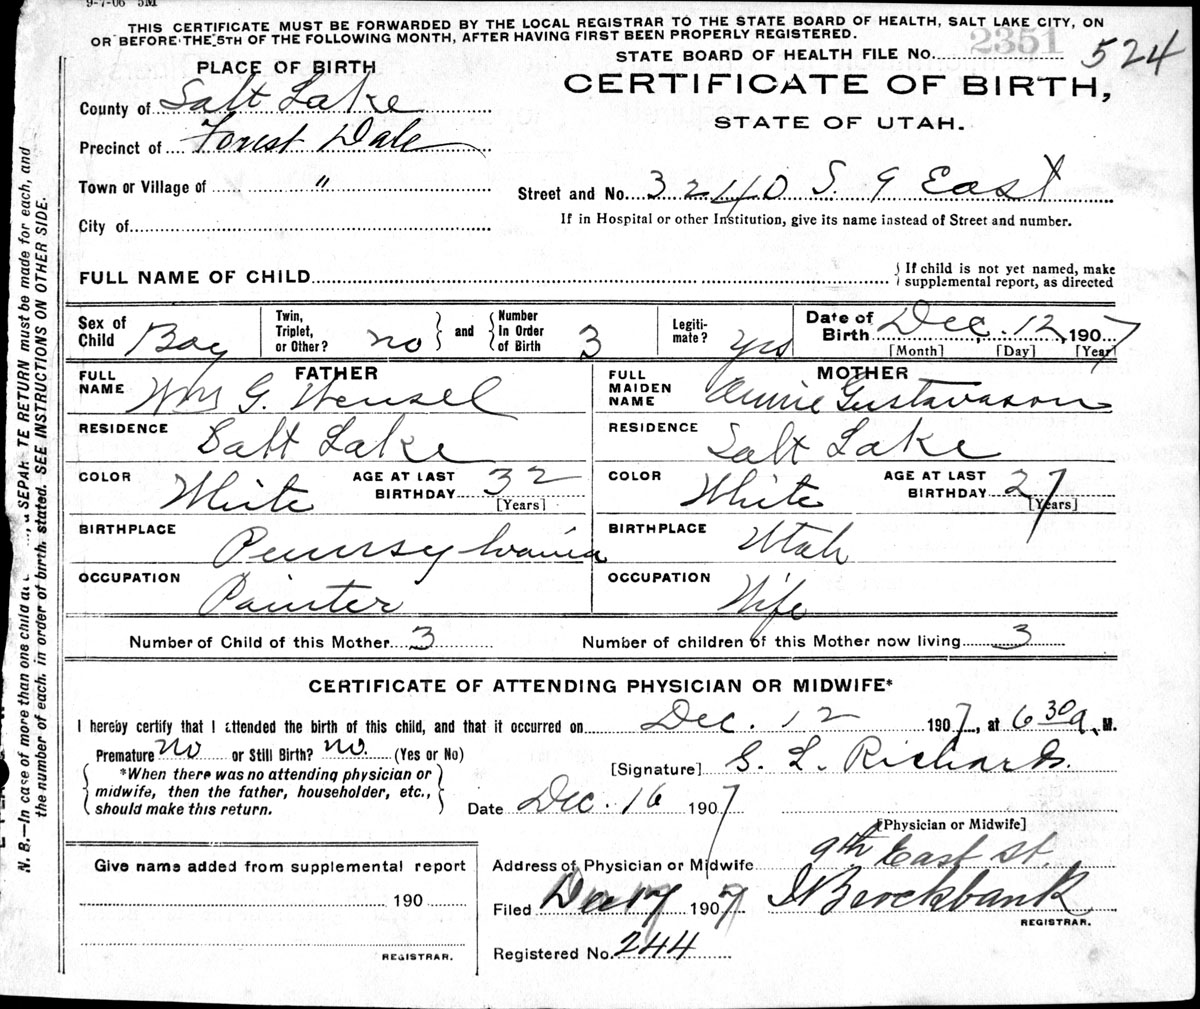 9-7-06 5M
THIS CERTIFICATE MUST BE FORWARDED BY THE LOCAL REGISTRAR TO THE STATE BOARD OF HEALTH, SALT LAKE CITY, ON
OR BEFORE THE 5TH OF THE FOLLOWING MONTH, AFTER HAVING FIRST BEEN PROPERLY REGISTERED.
STATE BOARD OF HEALTH FILE No. 2351 524
PLACE OF BIRTH
CERTIFICATE OF BIRTH,
STATE OF UTAH.
County of Salt Lake
Precinct of Forest Dale
Town or Village of "
Street and No. 3240 S. 9 East
City of
If in Hospital or other Institution, give its name instead of Street and number.
FULL NAME OF CHILD
{ If child is not yet named, make
supplemental report, as directed
Sex of Child Boy
Twin, Triplet, or Other? no } and { Number In Order of Birth 3
Legiti-mate? yes
Date of Birth Dec. 12, 1907
[Month] [Day] [Year]
FATHER
FULL NAME Wm G. Wensel
RESIDENCE Salt Lake
COLOR White AGE AT LAST BIRTHDAY 32
[Years]
BIRTHPLACE Pennsylvania
OCCUPATION Painter
MOTHER
FULL MAIDEN NAME Annie Gustavason
RESIDENCE Salt Lake
COLOR White AGE AT LAST BIRTHDAY 27
[Years]
BIRTHPLACE Utah
OCCUPATION Wife
Number of Child of this Mother 3 Number of children of this Mother now living 3
CERTIFICATE OF ATTENDING PHYSICIAN OR MIDWIFE*
I hereby certify that I attended the birth of this child, and that it occurred on Dec. 12 1907, at 6 30 a. M.
Premature no or Still Birth? no. (Yes or No)
*When there was no attending physician or
midwife, then the father, householder, etc.,
should make this return.
[Signature] S. L. Richards.
Date Dec. 16 1907
[Physician or Midwife]
Address of Physician or Midwife 9th East St.
Give name added from supplemental report
190
REGISTRAR.
Filed Dec 17 1907 Brockbank
REGISTRAR.
Registered No. 244
N. B.—In case of more than one child at SEPARATE RETURN must be made for each, and
the number of each, in order of birth, stated. SEE INSTRUCTIONS ON OTHER SIDE.